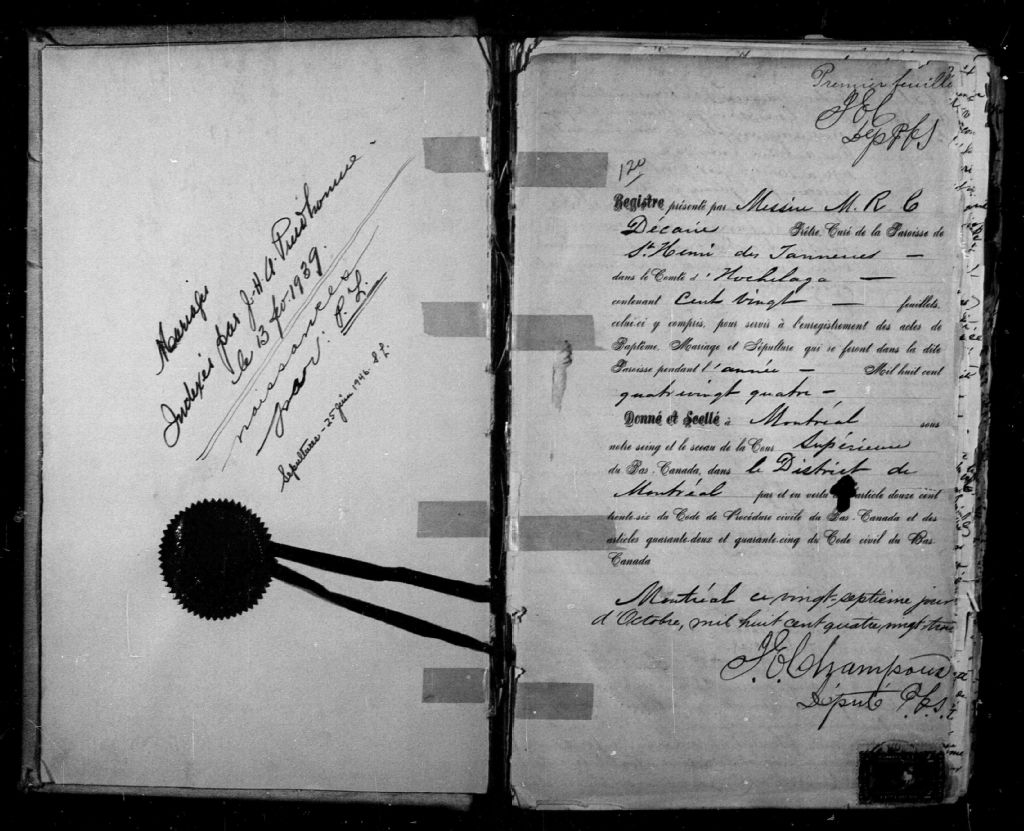 Mariages
Indexés par J.-H. A. Prudhomme
le 13 fév. 1939.
naissances
par: P. L.
Sépultures - 25 juin 1946.
Premier feuillet
J E C
Dep P C S
120
Registre présenté par Messire M. R C
Décarie Prêtre, Curé de la Paroisse de
St Henri des Tanneries —
dans le Comté d'Hochelaga —
contenant Cent vingt — feuillets,
celui-ci y compris, pour servir à l'enregistrement des actes de
Baptême, Mariage et Sépulture qui se feront dans la dite
Paroisse pendant l'année — Mil huit cent
quatrevingt quatre —
Donné et Scellé à Montréal sous
notre seing et le sceau de la Cour Supérieure
du Bas-Canada, dans le District de
Montréal par et en vertu article douze cent
trente-six du Code de Procédure civile du Bas-Canada et des
articles quarante-deux et quarante-cinq du Code civil du Bas
Canada
Montréal ce vingt-septième jour
d'Octobre, mil huit cent quatre vingt-trois
J. E. Champoux
Député P. C. S.